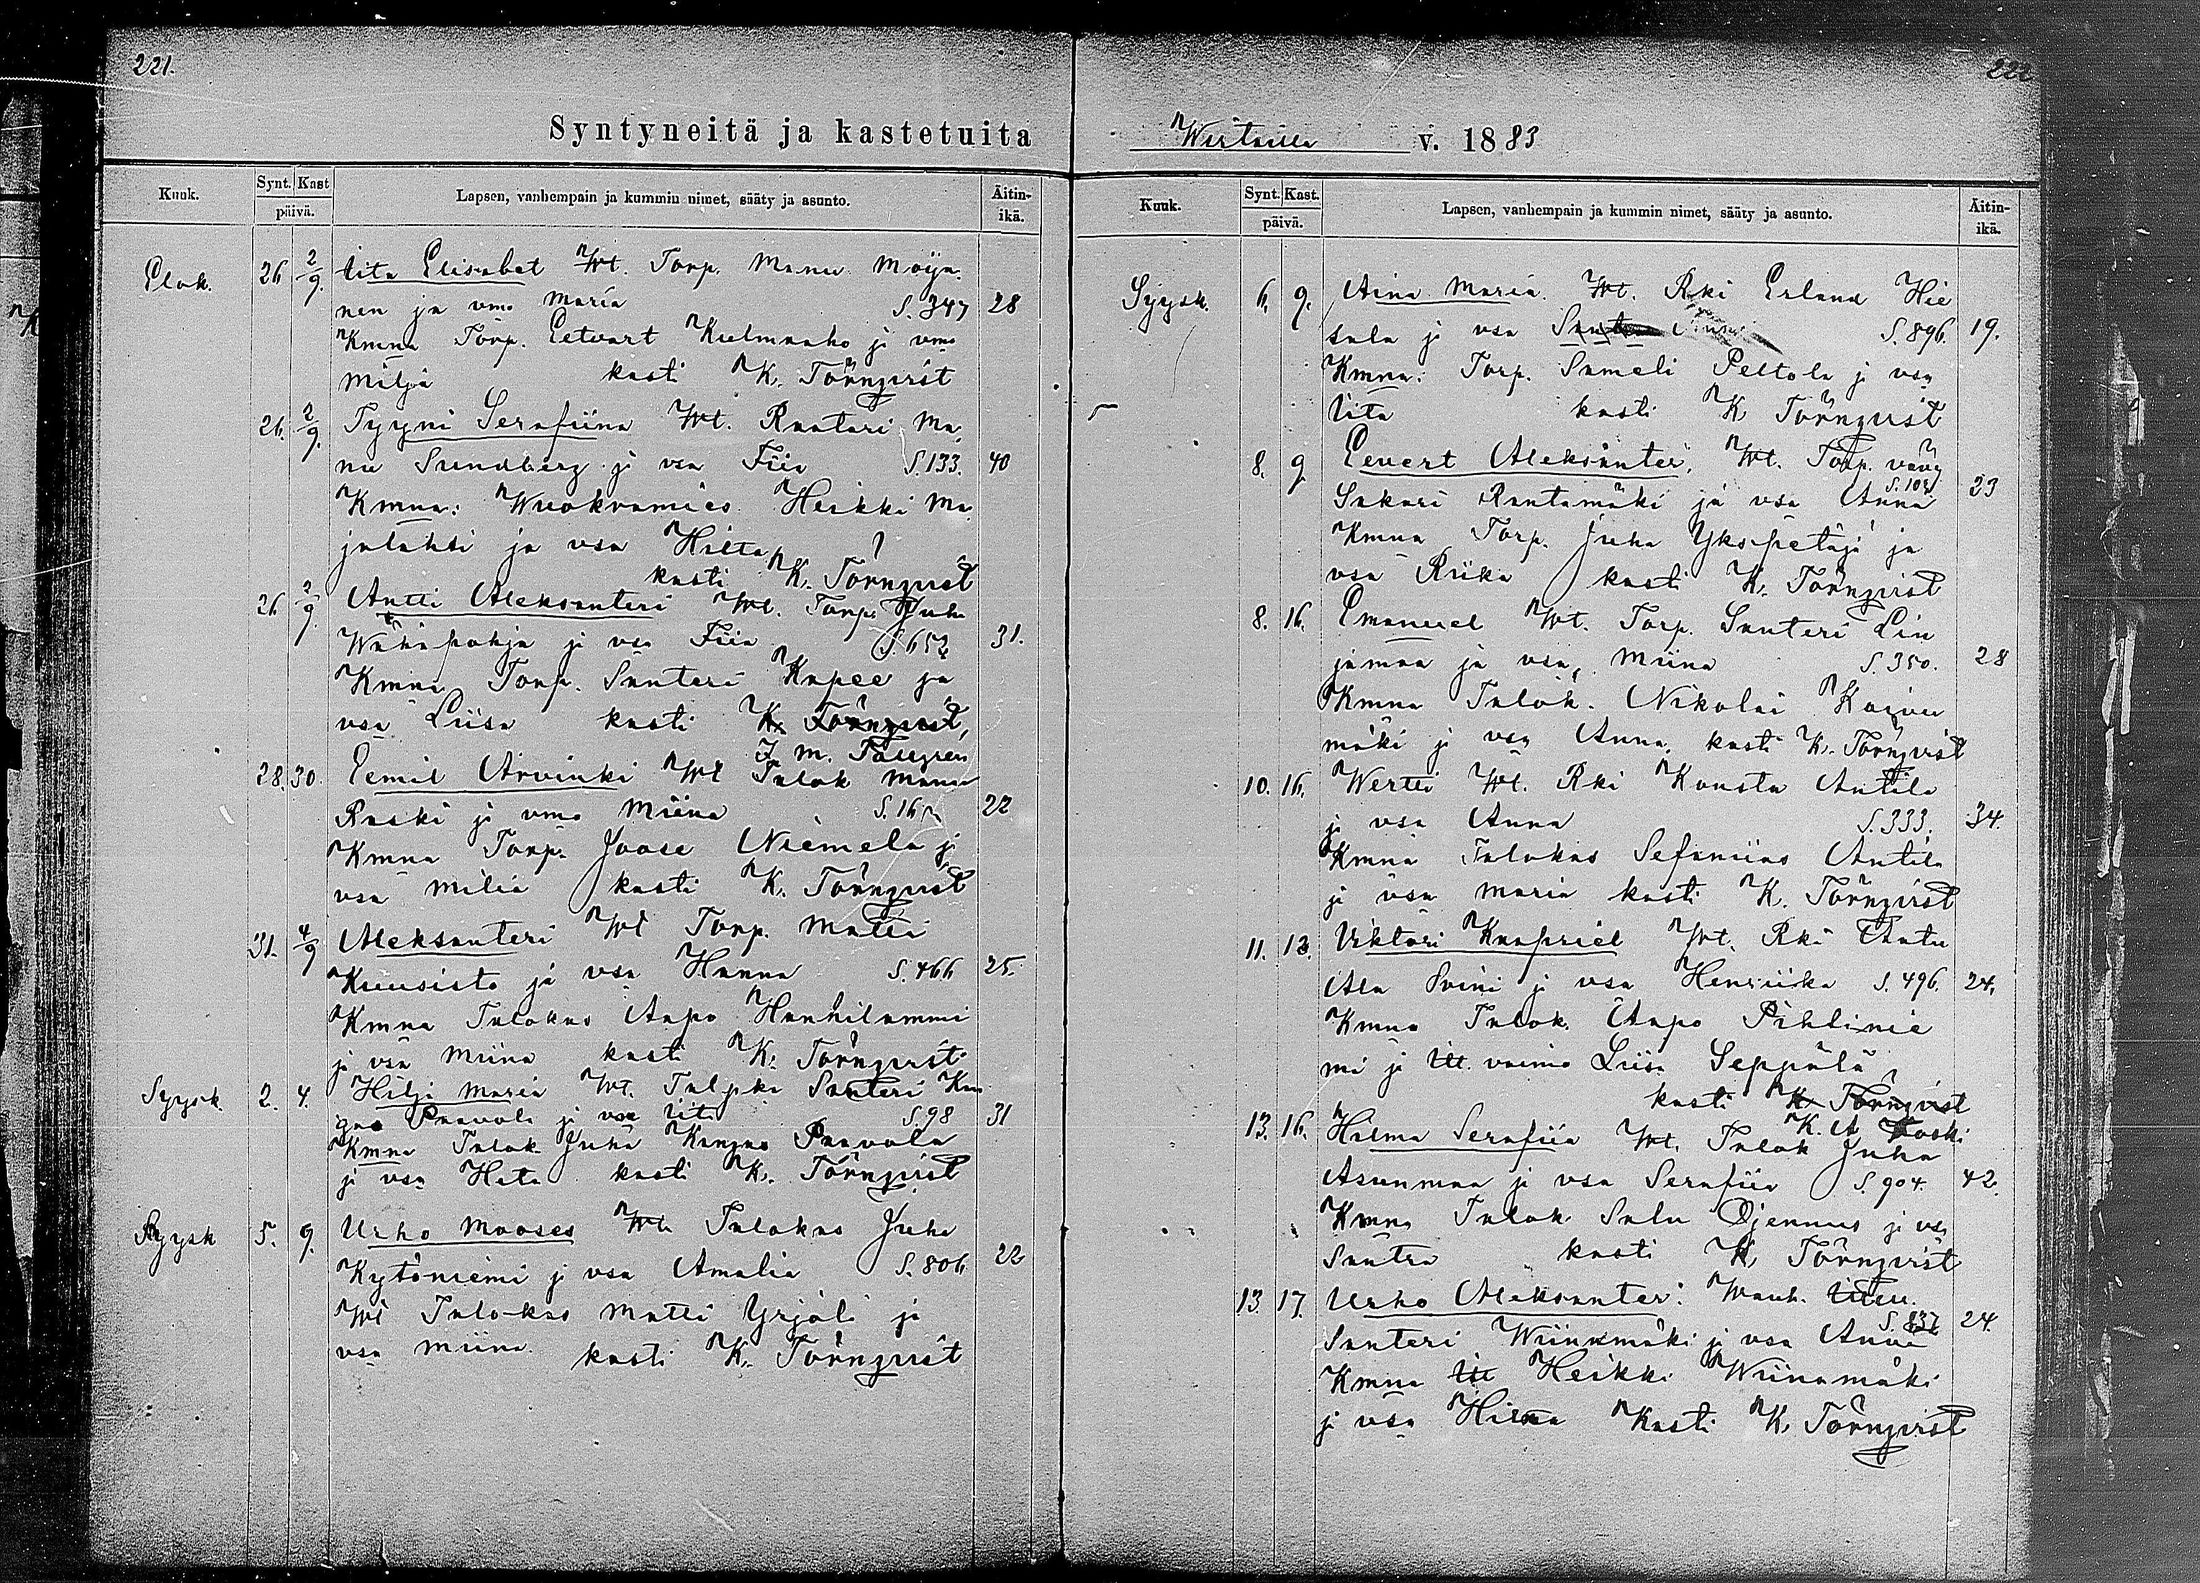 221.
Syntyneitä ja kastetuita
Kuuk. Synt. Kast päivä. Lapsen, vanhempain ja kummin nimet, sääty ja asunto. Äitin-ikä.
Elok. 26 2/9 Iita Elisabet Wt. Torp. Manu Möyk-
nen ja vmo Maria S. 347 28
Kmna Torp. Eetvart Kulmaaho ja vmo
Milja kasti K. Törnqvist
26. 2/9. Tyyni Serafiina Wt. Raatari Ma
nu Sundberg ja vsa Fiia S. 133. 40
Kmna: Wuokramies Heikki Ma
jalahti ja vsa Hilta
kasti K. Törnqvist
26 2/9. Antti Aleksanteri Wt. Torp. Juha
Wähäpohja ja vsa Fiia S. 652 31.
Kmna Torp. Santeri Kapee ja
vsa Liisa kasti K. Törnqvist,
J. M. Tallgren
28. 30. Eemil Arvinki Wt Talok Manu
Raski ja vmo Miina S. 165 22
Kmna Torp. Joose Niemelä j
vsa Milia kasti K. Törnqvist
31. 4/9 Aleksanteri Wt Torp. Matti
Kuusisto ja vsa Hanna S. 466 25.
Kmna Talokas Aapo Hanhilammi
ja vsa Miina kasti K. Törnqvist
Syysk. 2. 4. Hilja Maria Wt. Talpka Santeri Kan
gas Paavola ja vsa Iita S. 98 31
Kmna Talok Juha Kangas Paavola
ja vsa Heta kasti K. Törnqvist
Syysk 5. 9. Urho Mooses Wt. Talokas Juha
Kytöniemi j vsa Amalia S. 806 22
Wt Talokas Matti Yrjölä ja
vsa Miina kasti K. Törnqvist
222
Wirtailla v. 1883
Kuuk. Synt. Kast. päivä. Lapsen, vanhempain ja kummin nimet, sääty ja asunto. Äitin-ikä.
Syysk. 6. 9. Aina Maria. Wt. Rki Erland Hie
tala ja vsa S. 896. 19.
Kmna: Torp. Sameli Peltola j vsa
Iita kasti K Törnqvist
8. 9 Eevert Aleksanteri, Wt. Torp. vävy
Sakari Rantamäki ja vsa Anna 23
Kmna Torp. Juha Yksipetäjä ja
vsa Riika kasti K. Törnqvist
8. 16. Emanuel Wt. Torp. Santeri Lin
jamaa ja vsa, Miina S. 350. 28
Kmna Talok. Nikolai Koivu
mäki j vsa Anna. kasti K. Törnqvist
10. 16. Wertti Wt. Rki Konsta Antila
j vsa Anna S. 333. 34.
Kmna Talokas Sefanias Antila
j vsa Maria kasti K. Törnqvist
11. 13. Viktori Kaapriel Wt. Rki Antu
Ala Soini j vsa Henriika S. 496. 24.
Kmna Talok. Aapo Pihlinie
mi ja Itt. vaimo Liisa Seppälä
kasti K. Törnqvist
K. A Koski
13. 16. Hilma Serafiia Wt. Talok Juha
Asunmaa j vsa Serafiia S. 904. 42.
Kmna Talok Salu Ojennus j vsa
Santra kasti K. Törnqvist
13. 17. Urho Aleksanteri. Wanh.
S. 837 24.
Santeri Wiinamäki j vsa Anna
Kmna Itt Heikki Wiinamäki
j vsa Hilma Kasti K. Törnqvist